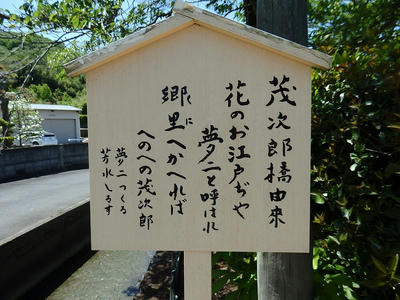 茂次郎橋由来
花のお江戸ぢや
夢二と呼ばれ
郷里へかへれば
くに
へのへの茂次郎
夢二つくる
芳水しるす